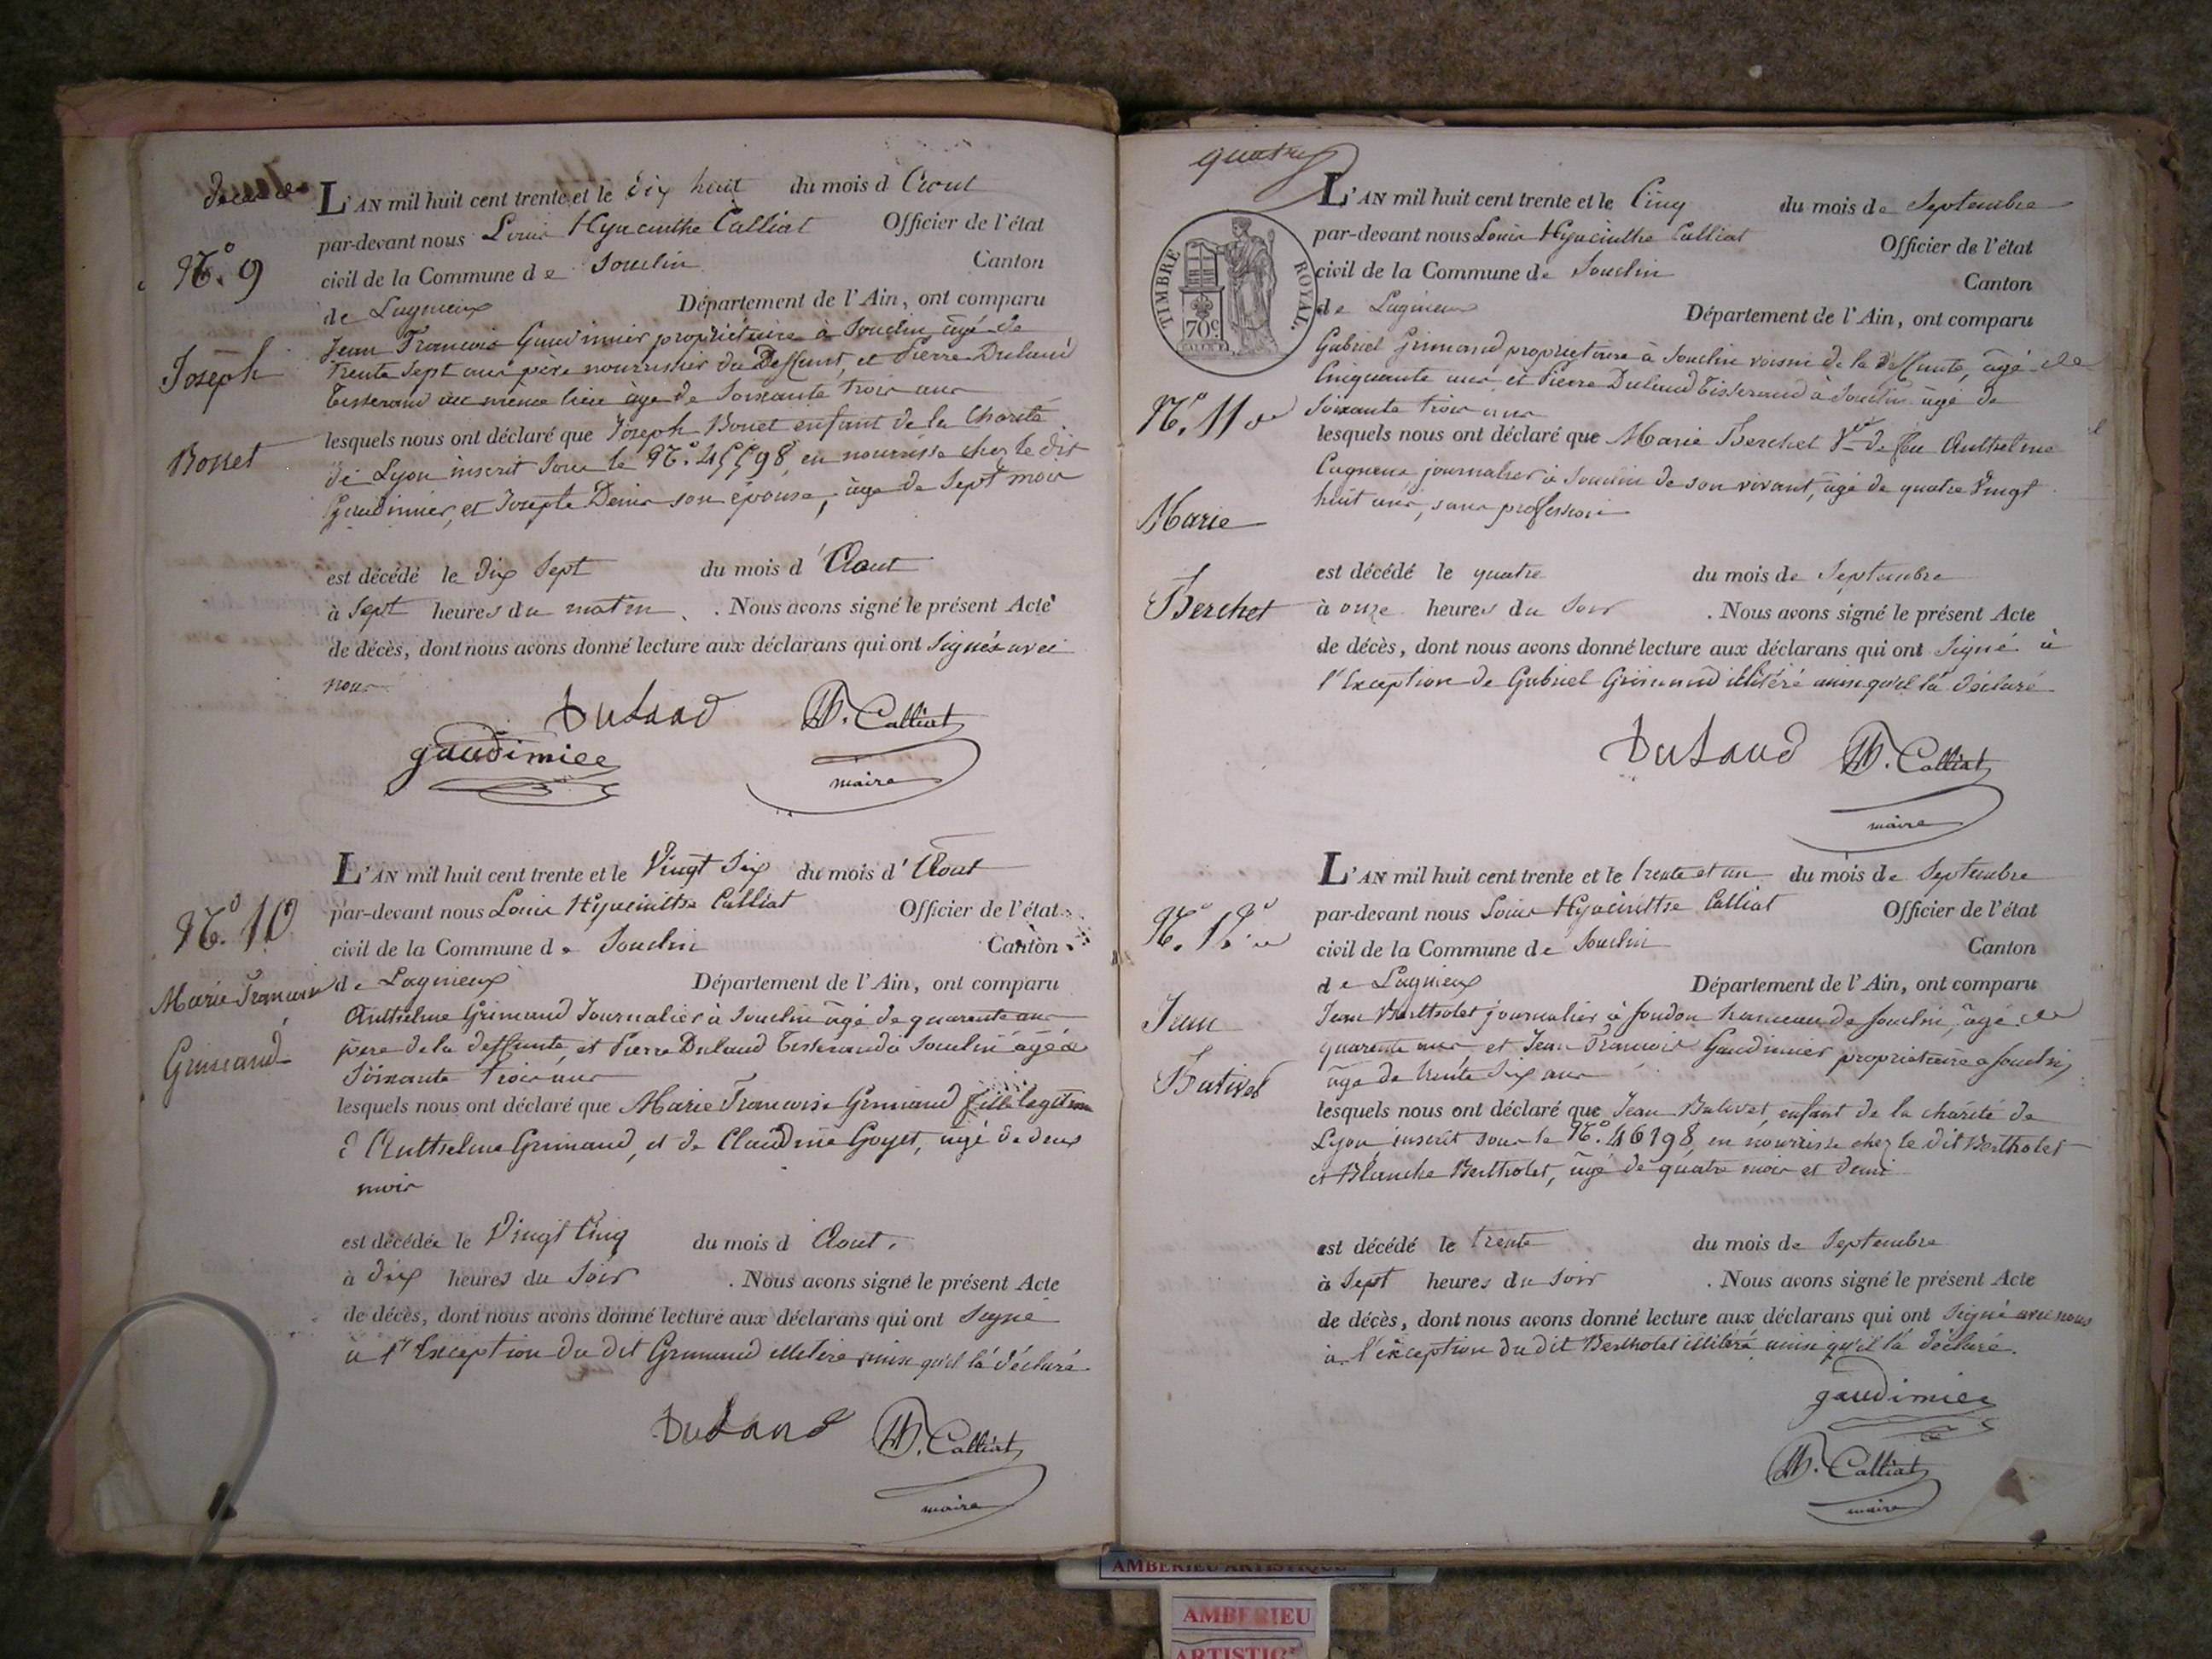 décès de
N.o 9
Joseph
Bonet
L'AN mil huit cent trente et le dix huit du mois d Aout
par-devant nous Louis Hyacinthe Calliat Officier de l'état
civil de la Commune de Souclin Canton
de Lagnieux Département de l'Ain, ont comparu
Jean François Gaudimier propriétaire à Souclin âgé de
trente sept ans père nourrisier du deffunt, et Pierre Dulaud
Tisserand au même lieu âgé de Soixante trois ans
lesquels nous ont déclaré que Joseph Bonet enfant de la Charité
de Lyon inscrit sous le N.o 45598, en nourrisse chez le dit
Gaudimier, et Josephte Denis son épouse, âgé de Sept mois
est décédé le dix Sept du mois d'Aout
à Sept heures du matin. Nous avons signé le présent Acte
de décès, dont nous avons donné lecture aux déclarans qui ont Signés avec
nous
Dulaud H. Calliat
gaudimier
maire
N.o 10
Marie Françoise
Grimand
L'AN mil huit cent trente et le Vingt Six du mois d'Aout
par-devant nous Louis Hyacinthe Calliat Officier de l'état
civil de la Commune de Souclin Canton
de Lagnieux Département de l'Ain, ont comparu
Anthelme Grimand Journalier à Souclin âgé de quarente ans
père de la deffunte, et Pierre Dulaud Tisserand à Souclin âgé de
Soixante trois ans
lesquels nous ont déclaré que Marie Françoise Grimand fille légitime
d'Anthelme Grimand, et de Claudine Goyet, âgé de deux
mois
est décédée le Vingt Cinq du mois d Aout.
à dix heures du Soir. Nous avons signé le présent Acte
de décès, dont nous avons donné lecture aux déclarans qui ont Signé
à l'Exception du dit Grimand illitéré ainsi qu'il l'a déclaré
Dulaud H. Calliat
maire
quatre
TIMBRE ROYAL.
70c
N.o 11
Marie
Berchet
L'AN mil huit cent trente et le Cinq du mois de Septembre
par-devant nous Louis Hyacinthe Calliat Officier de l'état
civil de la Commune de Souclin Canton
de Lagnieux Département de l'Ain, ont comparu
Gabriel Grimand propriétaire à Souclin voisin de la deffunte, âgé de
Cinquante ans, et Pierre Dulaud Tisserand à Souclin âgé de
Soixante trois ans
lesquels nous ont déclaré que Marie Berchet Vve de feu Anthelme
journalier à Souclin de son vivant, âgé de quatre Vingt
huit ans, sans proffession
est décédé le quatre du mois de Septembre
à onze heures du Soir. Nous avons signé le présent Acte
de décès, dont nous avons donné lecture aux déclarans qui ont Signé à
l'Exception de Gabriel Grimand illitéré ainsi qu'il l'a déclaré
Dulaud H. Calliat
maire
N.o 12
Jean
Bativet
L'AN mil huit cent trente et le trente et un du mois de Septembre
par-devant nous Louis Hyacinthe Calliat Officier de l'état
civil de la Commune de Souclin Canton
de Lagnieux Département de l'Ain, ont comparu
Jean Bertholet journalier à Soudon hameau de Souclin, âgé de
quarente ans, et Jean François Gaudimier propriétaire à Souclin,
âgé de trente Six ans
lesquels nous ont déclaré que Jean Bativet, enfant de la charité de
Lyon inscrit sous le N.o 46198, en nourrisse chez le dit Bertholet
et Blanche Bertholet, âgé de quatre mois et demi
est décédé le trente du mois de Septembre
à Sept heures du Soir. Nous avons signé le présent Acte
de décès, dont nous avons donné lecture aux déclarans qui ont Signé avec nous
à l'éxception du dit Bertholet illitéré ainsi qu'il l'a déclaré.
gaudimier
H. Calliat
maire
AMBERIEU ARTISTIQUE
AMBERIEU
ARTISTIQ